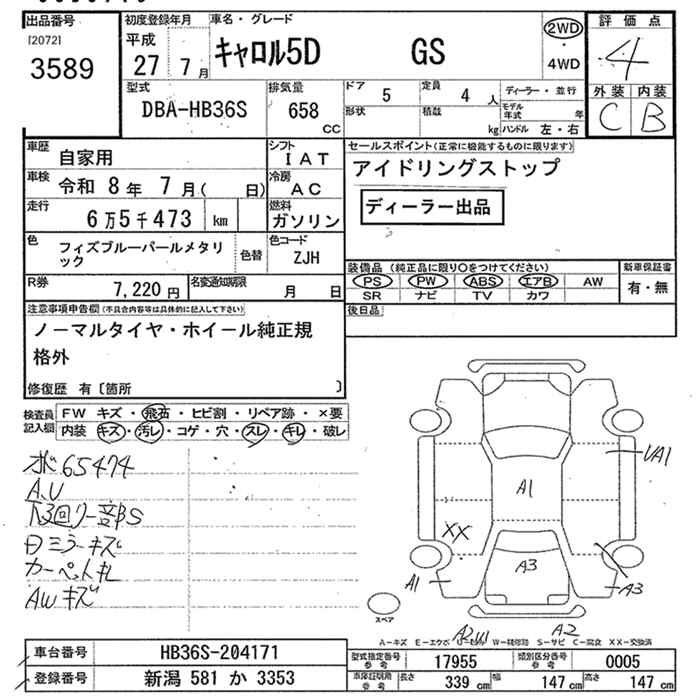 出品番号
[2072]
3589
初度登録年月
平成
27 7月
車名・グレード
キャロル5D GS
2WD
・
4WD
評価点
4
外装 内装
C B
型式
DBA-HB36S
排気量
658
CC
ドア
5
定員
4 人
形状
積載
kg
ディーラー・並行
モデル年式 年
ハンドル 左・右
車歴
自家用
シフト
IAT
車検
令和 8年 7月( 日)
冷房
AC
走行
6万5千473 km
燃料
ガソリン
色
フィズブルーパールメタリ
ック
色替
色コード
ZJH
R券
7,220 円
名変通知期限
月 日
セールスポイント(正常に機能するものに限ります)
アイドリングストップ
ディーラー出品
装備品 (純正品に限り〇をつけてください)
PS PW ABS エアB AW
SR ナビ TV カワ
新車保証書
有・無
後日品
注意事項申告欄(不具合内容等は具体的に記入して下さい)
ノーマルタイヤ・ホイール純正規
格外
修復歴 有〔箇所 〕
検査員
記入欄
FW キズ・飛石・ヒビ割・リペア跡・×要
内装 キズ・汚レ・コゲ・穴・スレ・キレ・破レ
ボ 65474
A.U
下回り一部S
日ミラーキズ
カーペット札
AWキズ
UA1
A1
XX
A3
A1
A3
スペア
A2 W1
A2
A-キズ E-エクボ W-補修跡 S-サビ C-腐食 XX-交換済
車台番号
HB36S-204171
登録番号
新潟 581 か 3353
型式指定番号
参考
17955
類別区分番号
参考
0005
車庫証明用
参考
長さ 339 cm 幅 147 cm 高さ 147 cm